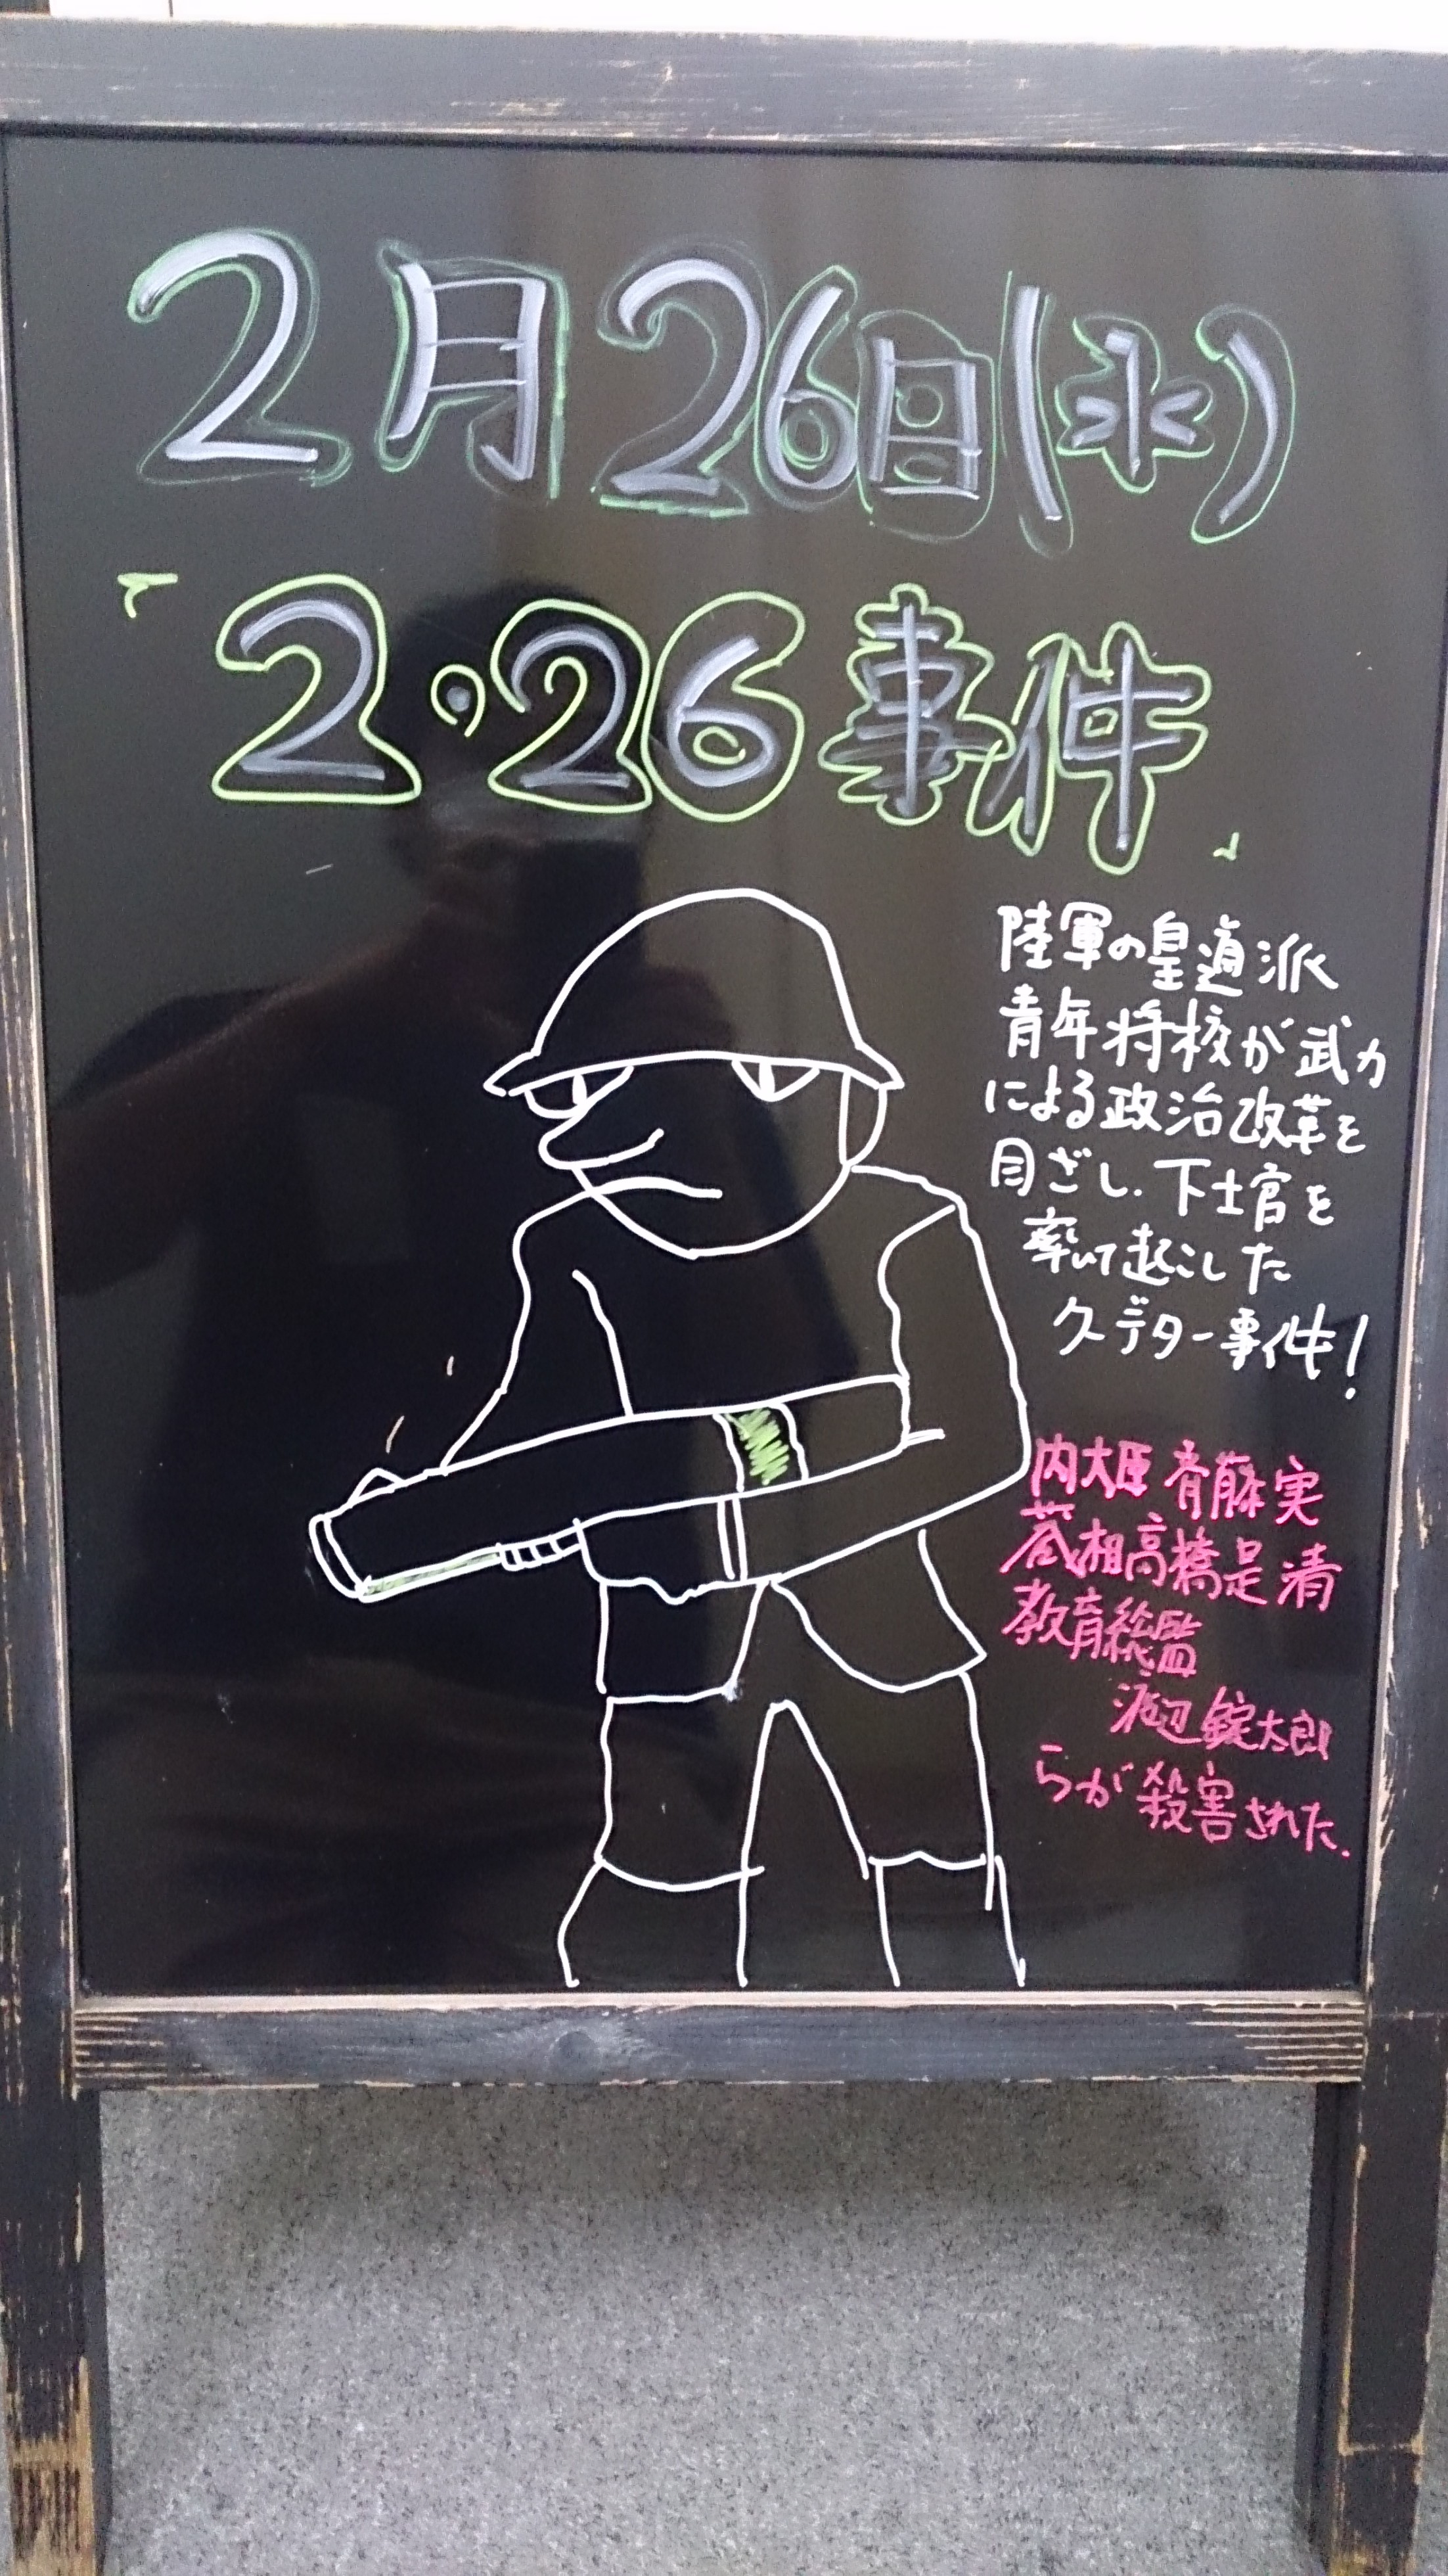 2月26日(水)
「2・26事件」
陸軍の皇道派
青年将校が武力
による政治改革を
目ざし、下士官を
率いて起こした
クーデター事件!
内大臣斉藤実
蔵相高橋是清
教育総監
渡辺錠太郎
らが殺害された.